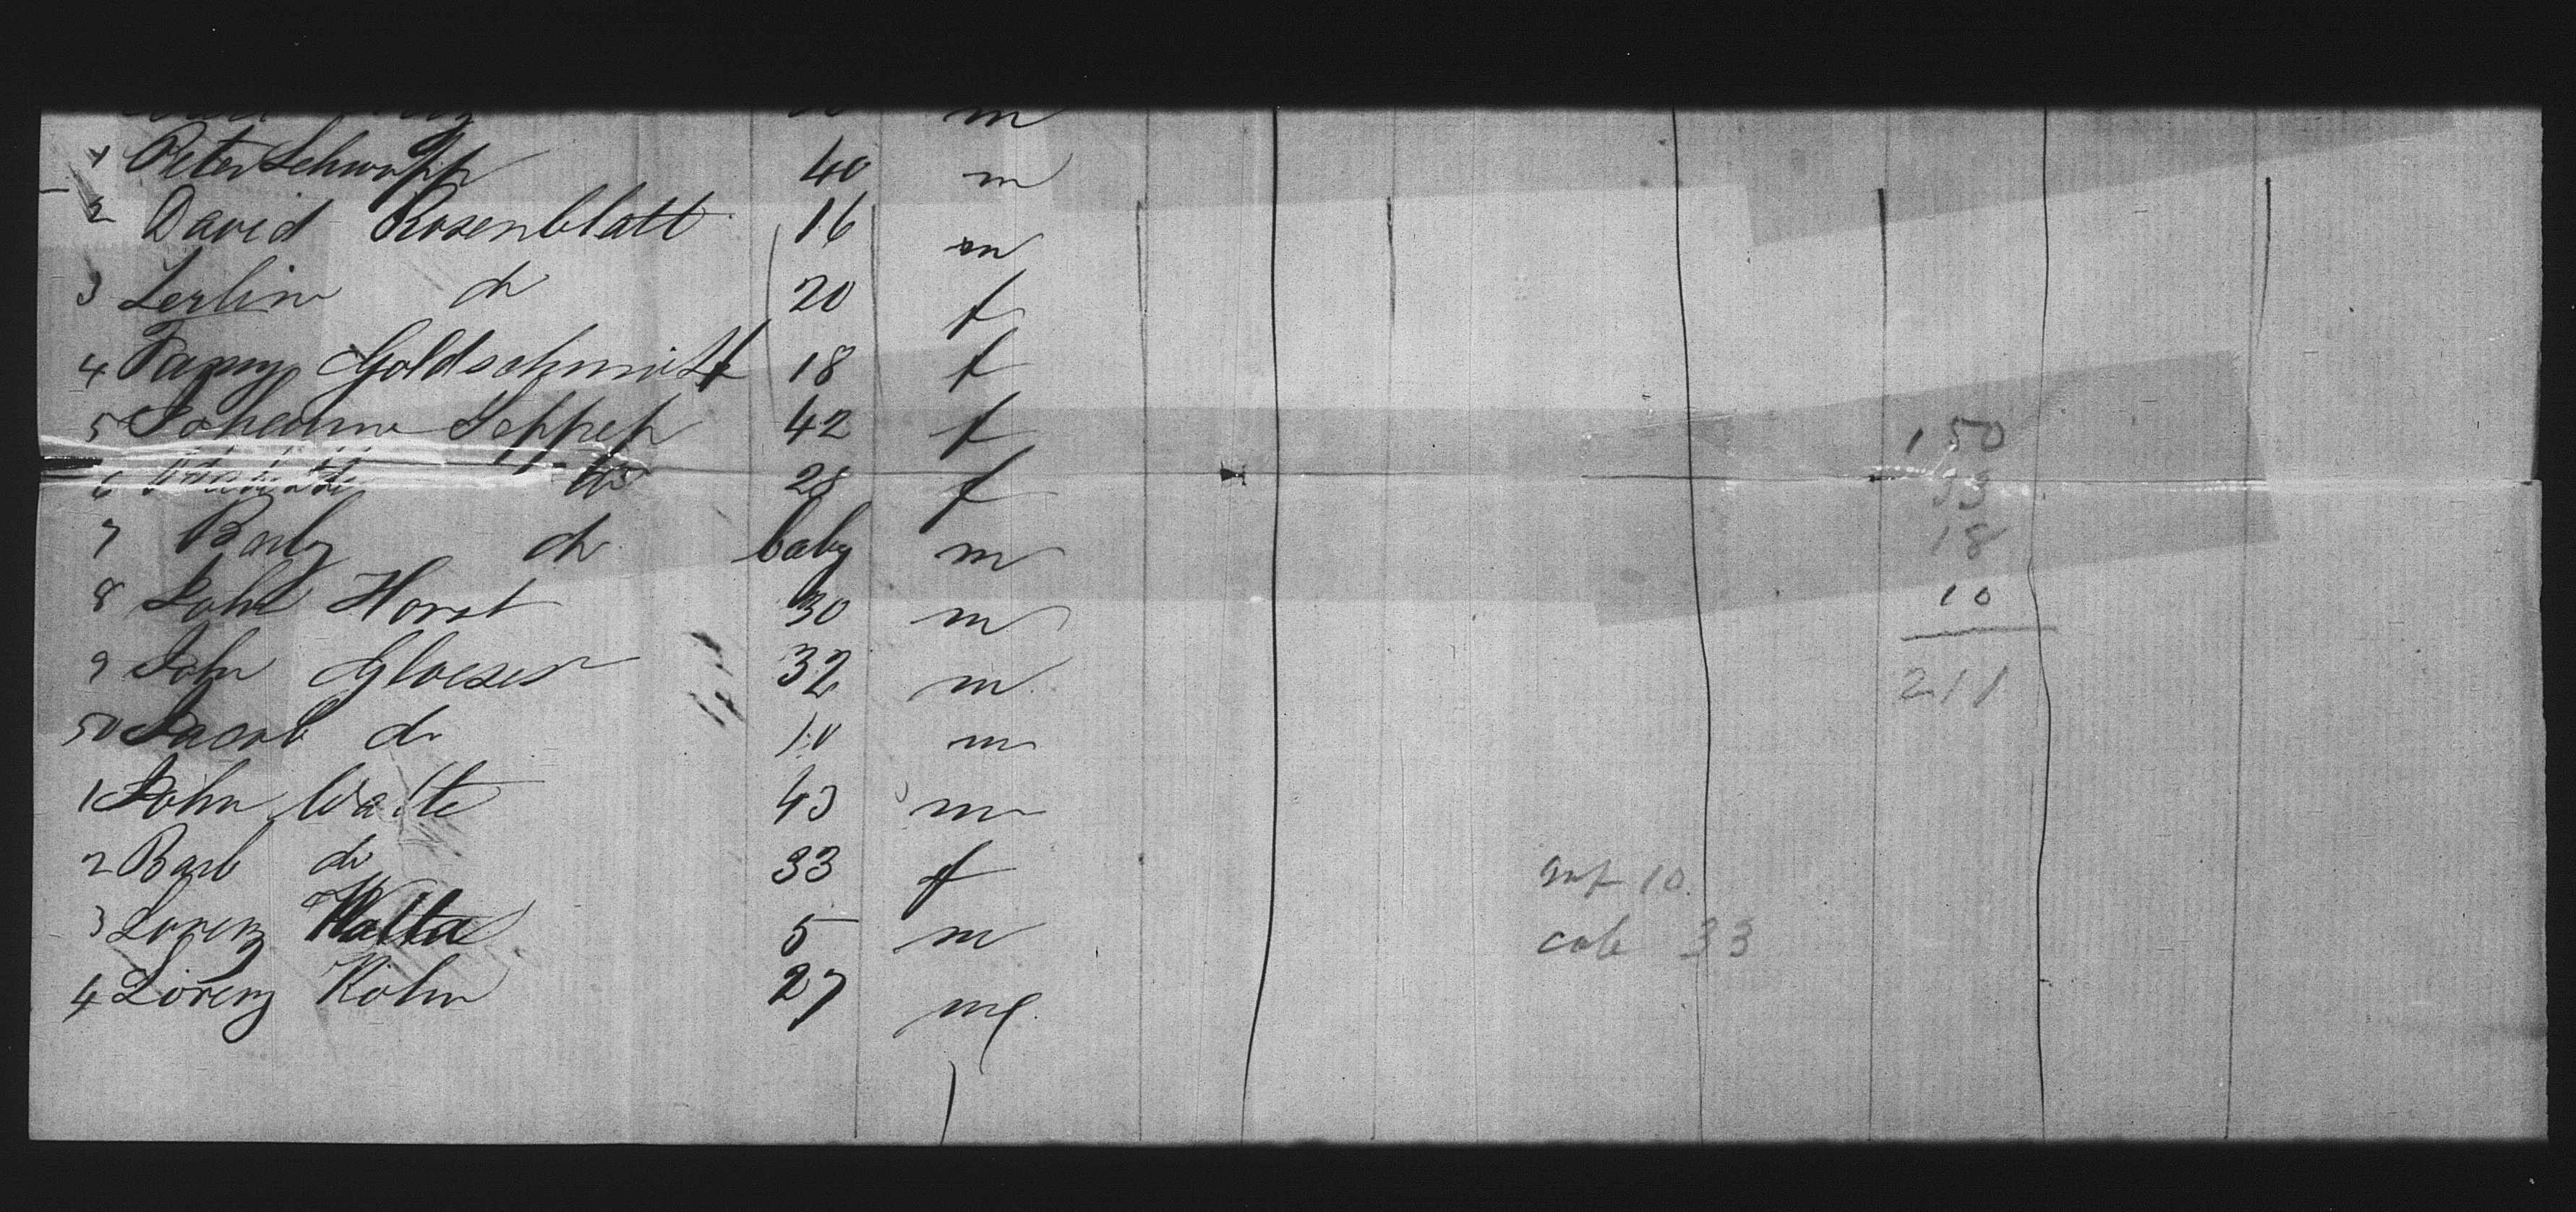 m
1 Peter Schwapp 40 m
2 David Rosenblatt 16 m
3 do 20 f
4 Fanny Goldschmidt 18 f
5 Johanna 42 f
6 do 28 f
7 Baby do baby m
8 John Horst 30 m
9 John Gloeser 32 m
50 Jacob do 10 m
1 John Walte 43 m
2 Barb do 33 f
3 Lorenz 5 m
4 Lorenz Köhn 27 m
150
33
18
10
211
inf 10
cab 33